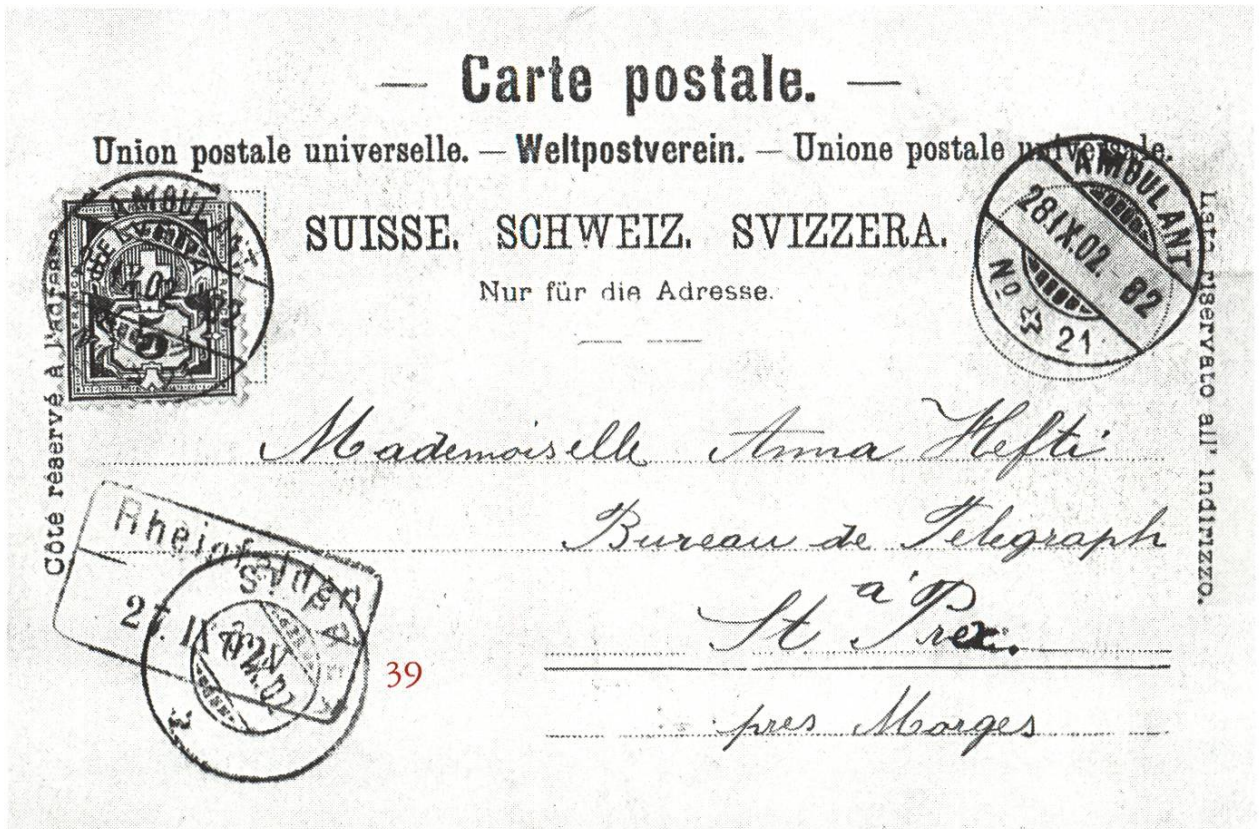 — Carte postale. —
Union postale universelle. — Weltpostverein. — Unione postale universale.
SUISSE. SCHWEIZ. SVIZZERA.
Nur für die Adresse.
Côté réservé à l'adresse
Lato riservato all' indirizzo.
AMBULANT
AMBULANT
28.IX.02. - 82
No 21
FRANCO
HELVETIA
5
Mademoiselle Anna Hefti
Bureau de Telegraph
à
St Prex.
près Morges
Rheinfelden
27. IX
ST PREX
39